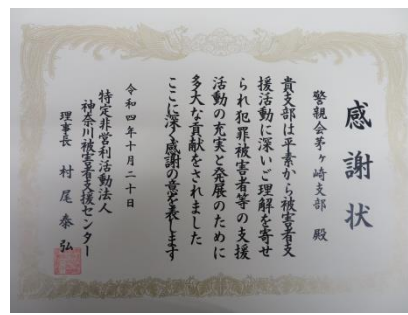 感謝状
警親会茅ヶ崎支部 殿
貴支部は平素から被害者支
援活動に深いご理解を寄せ
られ犯罪被害者等の支援
活動の充実と発展のために
多大な貢献をされました
ここに深く感謝の意を表します
令和四年十月二十日
特定非営利活動法人
神奈川被害者支援センター
理事長 村尾泰弘